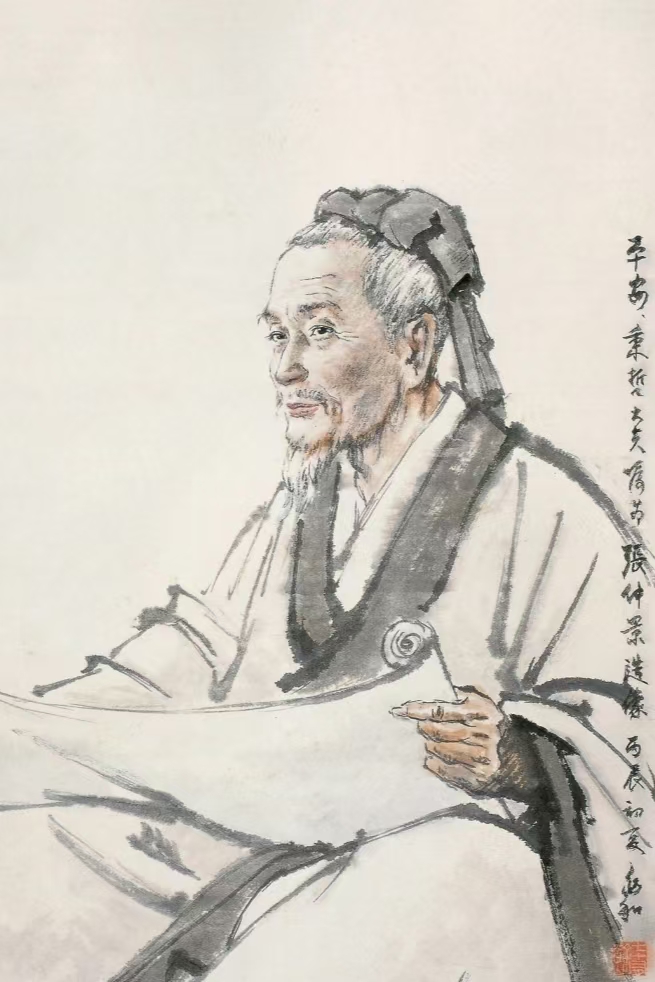 平安、秉哲大夫嘱 張仲景造像 丙辰初夏 兆和